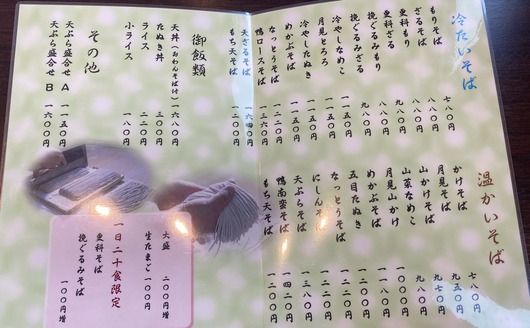 冷たいそば
もりそば 七八〇円
ざるそば 八八〇円
更科もり 八八〇円
更科ざる 九八〇円
挽ぐるみもり 八八〇円
挽ぐるみざる 九八〇円
冷やしなめこ 一一五〇円
月見とろろ 一一五〇円
冷やしたぬき 一一五〇円
めかぶそば 一一五〇円
なっとうそば
鴨ロースそば 一三六〇円
天ざるそば 一六四〇円
もち天そば 一二〇〇円
御飯類
天丼(おわんそば付) 一六八〇円
たぬき丼 三〇〇円
ライス 二二〇円
小ライス 一八〇円
その他
天ぷら盛合せ A 一一五〇円
天ぷら盛合せ B 一六〇〇円
温かいそば
かけそば 七八〇円
月見そば 九五〇円
山かけそば 九七〇円
山菜なめこ 九八〇円
月見山かけ 一〇〇〇円
めかぶそば 一一八〇円
五目たぬき
なっとうそば
にしんそば 一二〇〇円
天ぷらそば 一三八〇円
鴨南蛮そば 一四二〇円
もち天そば 一二〇〇円
大盛 二〇〇円増
生たまご 一〇〇円
一日二十食限定
更科そば
挽ぐるみそば 一〇〇円増